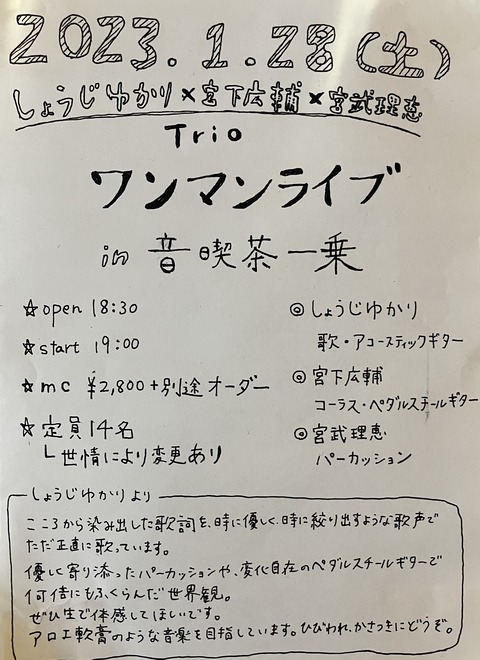 2023.1.28(土)
しょうじゆかり×宮下広輔×宮武理恵
Trio
ワンマンライブ
in 音喫茶一乗
☆open 18:30
☆start 19:00
☆mc ¥2,800+別途オーダー
☆定員14名
└世情により変更あり
◎しょうじゆかり
歌・アコースティックギター
◎宮下広輔
コーラス・ペダルスチールギター
◎宮武理恵
パーカッション
しょうじゆかりより
こころから染み出した歌詞を、時に優しく、時に絞り出すような歌声で
ただ正直に歌っています。
優しく寄り添ったパーカッションや、変化自在のペダルスチールギターで
何倍にもふくらんだ世界観。
ぜひ生で体感してほしいです。
アロエ軟膏のような音楽を目指しています。ひびわれ、かさつきにどうぞ。